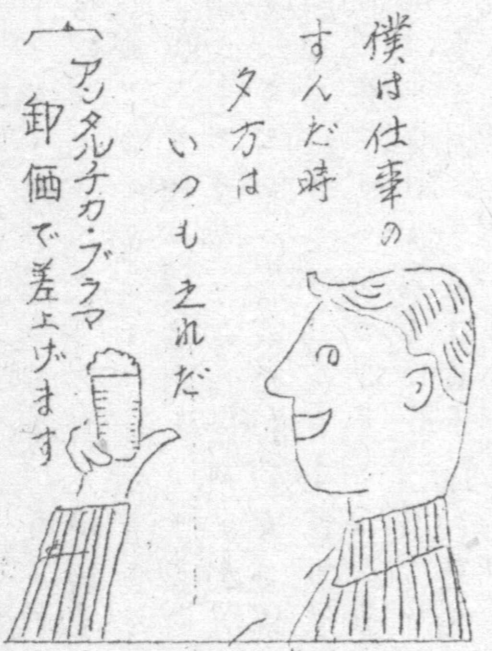 僕は仕事の
すんだ時
夕方は
いつも之れだ
アンタルチカ・ブラマ
卸価で差上げます